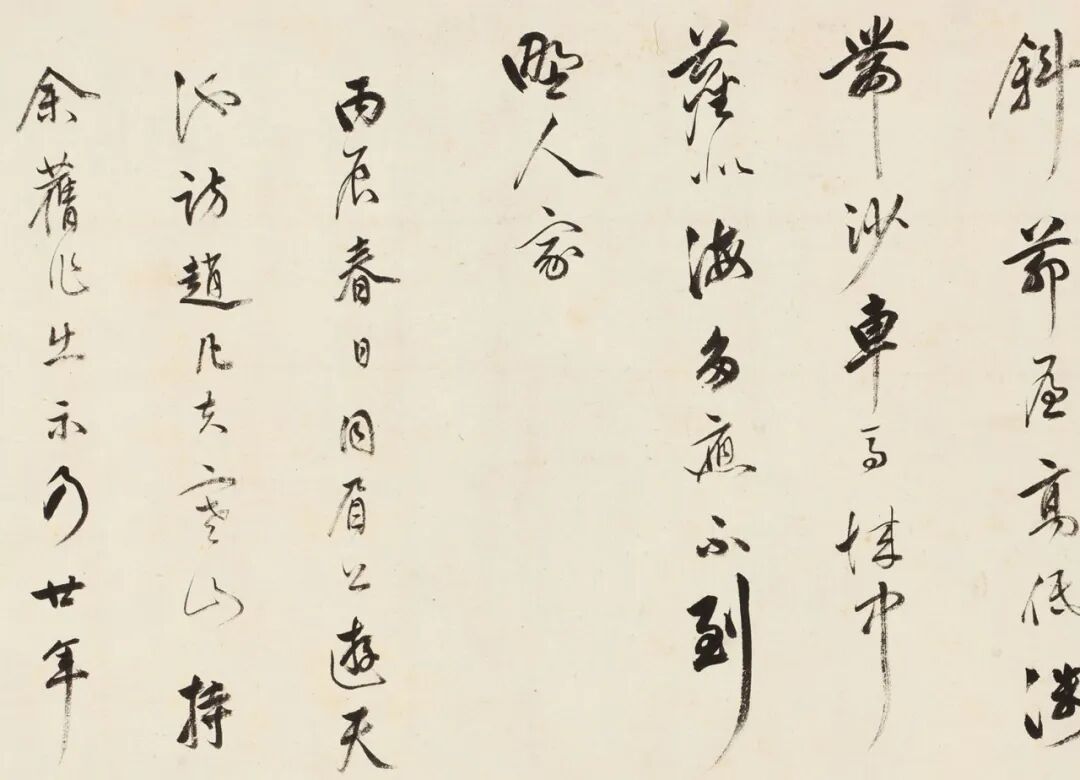 斜茆屋高低淺
帶沙車馬城中
塵似海多應不到
野人家
丙辰春日同眉公遊天
池訪趙凡夫寒山持
余舊作出示乃廿年